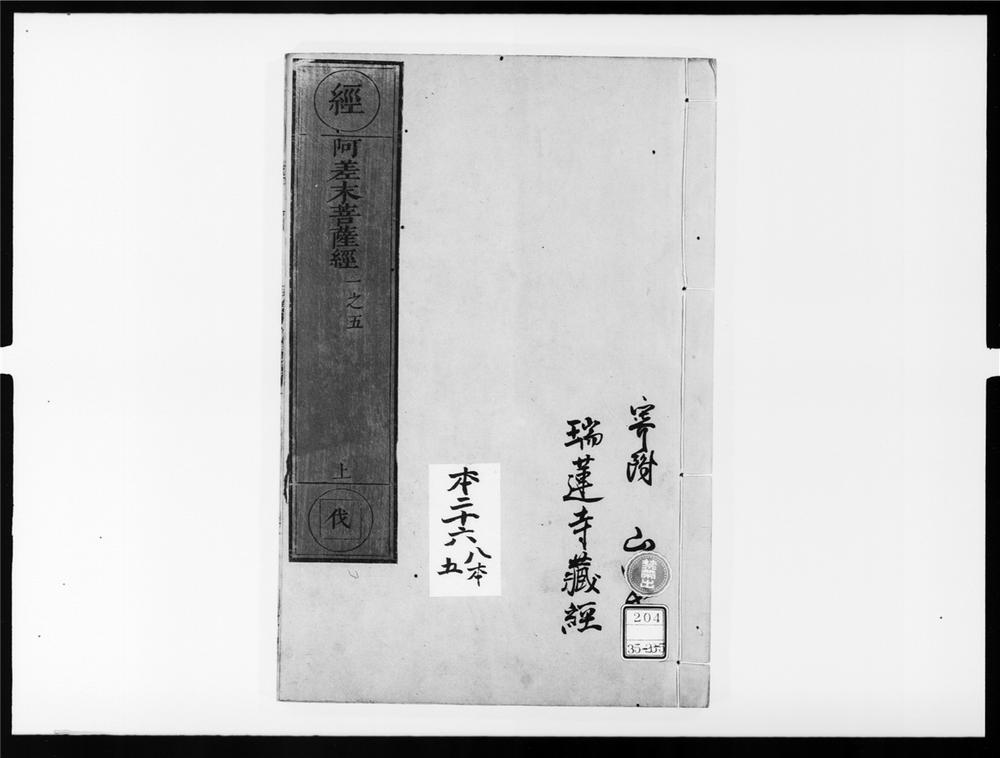 寄附 山
禁帶出
204
35-255
瑞蓮寺藏經
本二十六八本
五
經
阿差末菩薩經 一之五
上
伐